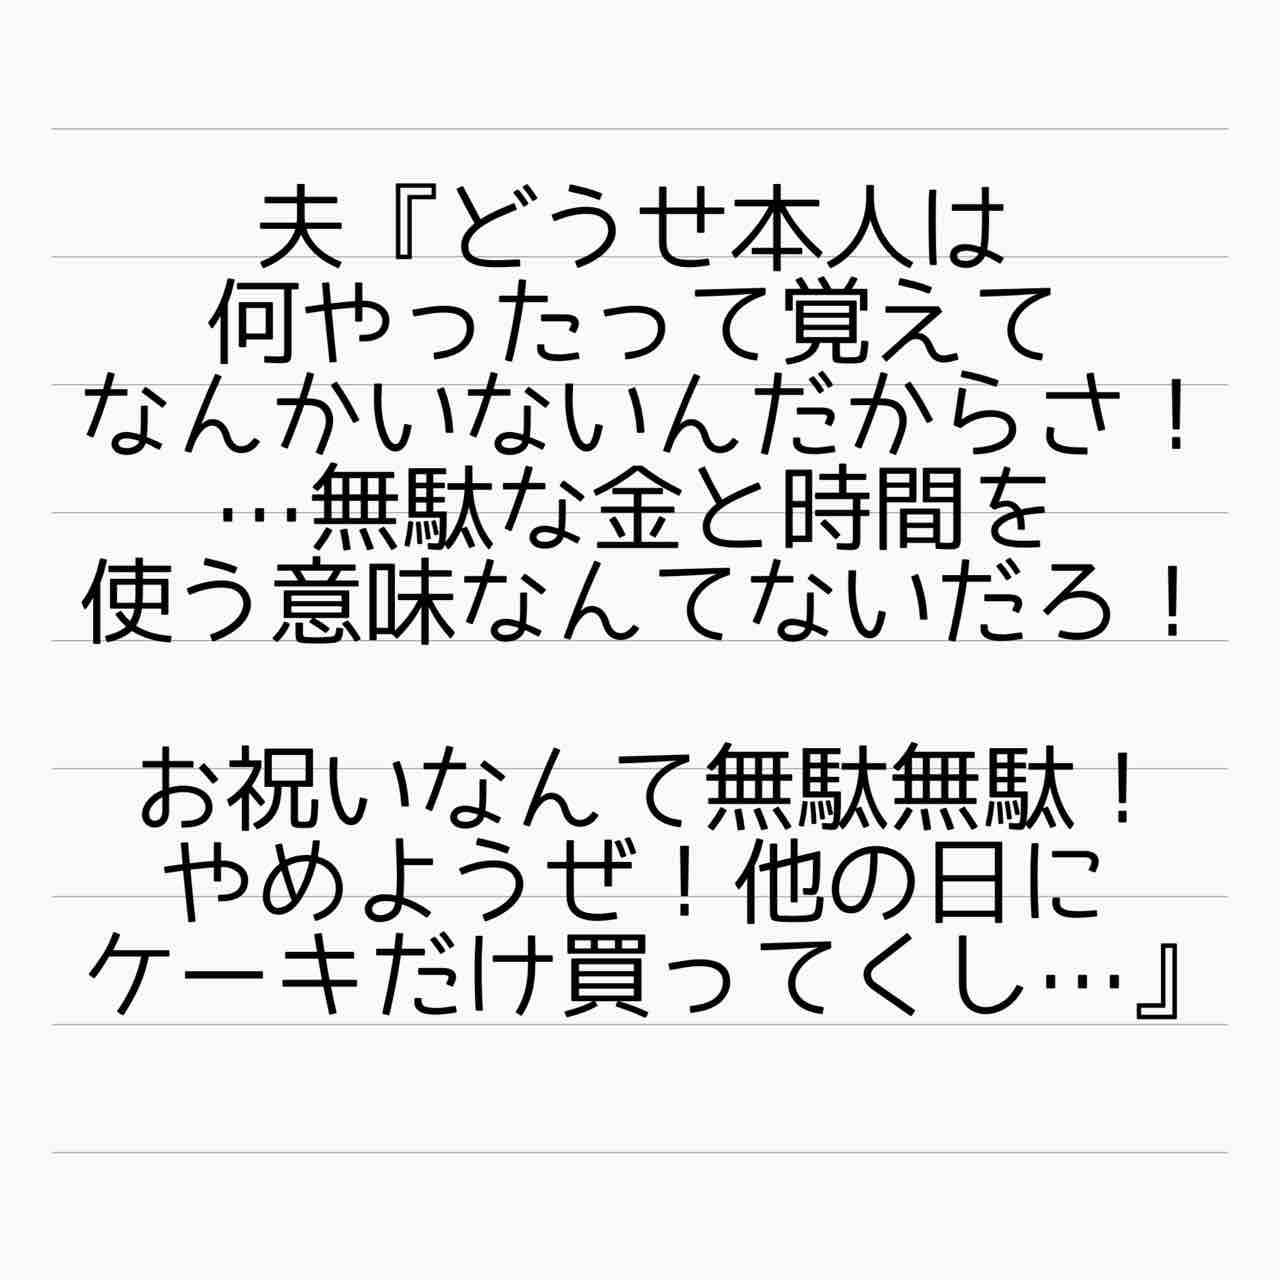 夫『どうせ本人は
何やったって覚えて
なんかいないんだからさ！
…無駄な金と時間を
使う意味なんてないだろ！
お祝いなんて無駄無駄！
やめようぜ！他の日に
ケーキだけ買ってくし…』